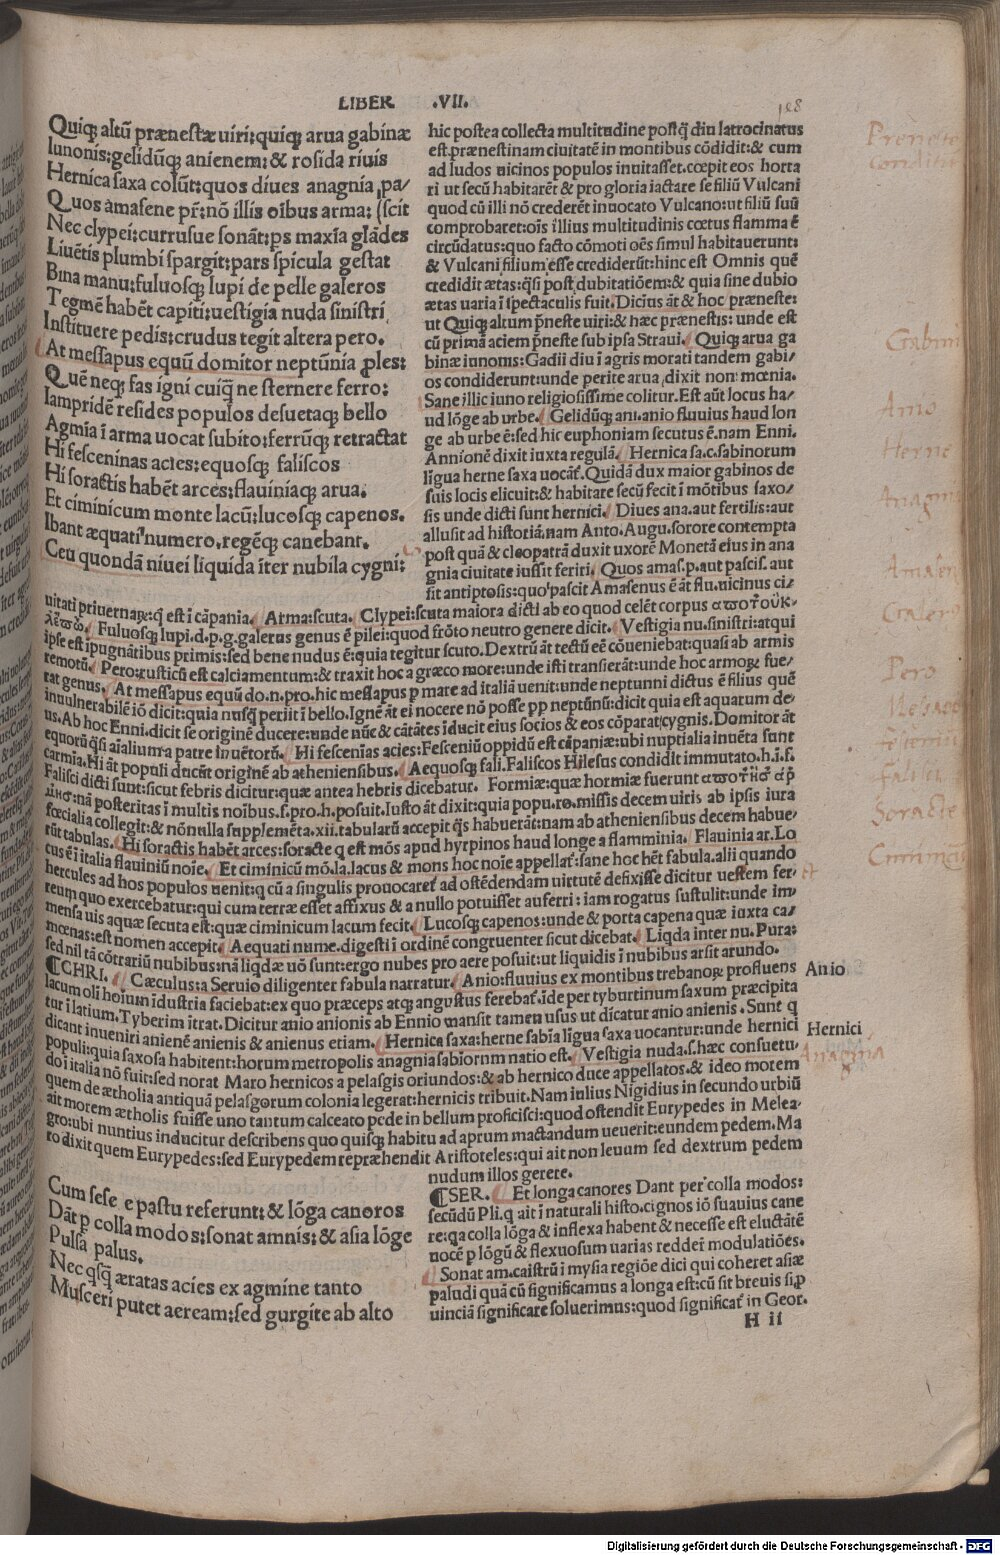 LIBER .VII.
Quiq; altū prænestæ uiri:quiq; arua gabinæ
Iunonis:gelidūq; anienem: & rosida riuis
Hernica saxa colūt:quos diues anagnia pa/
Quos amasene pr̄:nō illis oibus arma: (scit
Nec clypei:currusue sonāt:ps maxīa glādes
Liuētis plumbi spargit:pars spicula gestat
Bina manu:fuluosq; lupi de pelle galeros
Tegmē habēt capiti:uestigia nuda sinistri
Instituere pedis:crudus tegit altera pero.
At messapus equū domitor neptūnia ples:
Quē neq; fas igni cuiq̄ ne sternere ferro:
Iampridē resides populos desuetaq; bello
Agmīa ī arma uocat subito:ferrūq; retractat
Hi fesceninas acies:equosq; faliscos
Hi soractis habēt arces:flauiniaq; arua.
Et ciminicum monte lacū:lucosq; capenos.
Ibant æquati numero.regēq; canebant.
Ceu quondā niuei liquida īter nubila cygni:
hic postea collecta multitudine postq̄ diu latrocinatus
est prænestinam ciuitatē in montibus cōdidit:& cum
ad ludos uicinos populos inuitasset.cœpit eos horta
ri ut secū habitarēt & pro gloria iactare se filiū Vulcani
quod cū illi nō crederēt inuocato Vulcano:ut filiū suū
comprobaret:oīs illius multitudinis cœtus flamma ē
circūdatus:quo facto cōmoti oēs simul habitauerunt:
& Vulcani filium esse crediderūt:hinc est Omnis quē
credidit ætas:q̄si post dubitatiōem:& quia sine dubio
ætas uaria ī spectaculis fuit.Dicius āt & hoc præneste:
ut Quiq; altum p̄neste uiri:& hæc prænestis: unde est
cū primā aciem p̄neste sub ipsa Straui. Quiq; arua ga
binæ iunonis: Gadii diu ī agris morati tandem gabi/
os condiderunt:unde perite arua dixit non mœnia.
Sane illic iuno religiosissime colitur.Est aūt locus ha/
ud lōge ab urbe. Gelidūq; ani.anio fluuius haud lon
ge ab urbe ē:sed hic euphoniam secutus ē.nam Enni.
Annionē dixit iuxta regulā. Hernica sa.c.sabinorum
līgua herne saxa uocāt̄. Quidā dux maior gabinos de
suis locis elicuit:& habitare secū fecit ī mōtibus saxo/
sis unde dicti sunt hernici. Diues ana.aut fertilis:aut
allusit ad historiā.nam Anto.Augu.sorore contempta
post quā & cleopatrā duxit uxorē Monetā eius in ana
gnia ciuitate iussit feriri. Quos amas.p.aut pascis.aut
sit antiptosis:quo pascit Amasenus ē āt flu.uicinus ci/
uitati priuernaꝝ:q̄ est ī cāpania. Arma:scuta. Clypei:scuta maiora dicti ab eo quod celēt corpus
Fuluosq; lupi.d.p.g.galerus genus ē pilei:quod frōto neutro genere dicit. Vestigia nu.sinistri:atqui
ipse est ipugnātibus primis:sed bene nudus ē:quia tegitur scuto.Dextrū āt tectū eē cōueniebat:quasi ab armis
remotū. Pero:rusticū est calciamentum:& traxit hoc a græco more:unde isti transierāt:unde hoc armoꝝ fue/
rat genus. At messapus equū do.n.pro.hic messapus p mare ad italiā uenit:unde neptunni dictus ē filius quē
inuulnerabilē iō dicit:quia nusq̄ periit ī bello.Ignē āt ei nocere nō posse pp neptūnū:dicit quia est aquarum de/
us.Ab hoc Enni.dicit se originē ducere:unde nūc & cātātes īducit eius socios & eos cōparat cygnis.Domitor āt
equorū q̄si aialium:a patre inuētorū. Hi fescenias acies:Fesceniū oppidū est cāpaniæ:ubi nuptialia inuēta sunt
carmīa.Hi āt populi ducūt originē ab atheniensibus. Aequosq; fali.Faliscos Hilesus condidit immutato.h.i.f.
Falisci dicti sunt:sicut febris dicitur:quæ antea hebris dicebatur. Formiæ:quæ hormiæ fuerunt
nā posteritas ī multis noībus.f.pro.h.posuit.Iusto āt dixit:quia popu.ro.missis decem uiris ab ipsis iura
fœcialia collegit:& nōnulla supplemēta.xii.tabularū accepit q̄s habuerāt:nam ab atheniensibus decem habue/
rūt tabulas. Hi soractis habēt arces:soracte q est mōs apud hyrpinos haud longe a flamminia. Flauinia ar.Lo
cus ē ī italia flauiniū noīe. Et ciminicū mō.la.lacus & mons hoc noīe appellat̄:sane hoc hēt fabula.alii quando
hercules ad hos populos uenit:q cū a singulis prouocaret̄ ad ostēdendam uirtutē defixisse dicitur uestem fer/
reum quo exercebatur:qui cum terræ esset affixus & a nullo potuisset auferri: iam rogatus sustulit:unde im/
mensa uis aquæ secuta est:quæ ciminicum lacum fecit. Lucosq; capenos:unde & porta capena quæ iuxta ca/
mœnas:est nomen accepit. Aequati nume.digesti ī ordinē congruenter sicut dicebat. Liqda inter nu.Pura:
sed nil tā cōtrariū nubibus:nā liqdæ uō sunt:ergo nubes pro aere posuit:ut liquidis ī nubibus arsit arundo.
¶CHRI. Cæculus:a Seruio diligenter fabula narratur. Anio:fluuius ex montibus trebanoꝝ profluens
lacum oli hoīum īdustria faciebat:ex quo præceps atq; angustus ferebat̄.īde per tyburtinum saxum præcipita
tur ī latium.Tyberim ītrat.Dicitur anio anionis ab Ennio mansit tamen usus ut dīcatur anio anienis.Sunt q
dicant inueniri anienē anienis & anienus etiam. Hernica saxa:herne sabīa līgua saxa uocantur:unde hernici
populi:quia saxosa habitent:horum metropolis anagnia sabiorum natio est. Vestigia nuda.s.hæc consuetu/
do ī italia nō fuit:sed norat Maro hernicos a pelasgis oriundos:& ab hernico duce appellatos.& ideo morem
quem de ætholia antiquā pelasgorum colonia legerat:hernicis tribuit.Nam iulius Nigidius in secundo urbiū
ait morem ætholis fuisse uno tantum calceato pede in bellum proficisci:quod ostendit Eurypedes in Melea/
gro:ubi nuntius inducitur describens quo quisq; habitu ad aprum mactandum uenerit:eundem pedem.Ma
ro dixit quem Eurypedes:sed Eurypedem repræhendit Aristoteles:qui ait non leuum sed dextrum pedem
nudum illos gerere.
Cum sese e pastu referunt:& lōga canoros
Dāt p colla modos:sonat amnis:& asia lōge
Pulsa palus.
Nec q̄sq̄ æratas acies ex agmine tanto
Musceri putet aeream:sed gurgite ab alto
¶SER. Et longa canores Dant per colla modos:
secūdū Pli.q ait ī naturali histo.cignos iō suauius cane
re:qa colla lōga & inflexa habent & necesse est eluctātē
uocē p lōgū & flexuosum uarias redder̄ modulatiōes.
Sonat am.caistrū ī mysia regiōe dici qui coheret asiæ
paludi quā cū significamus a longa est:cū sit breuis si.p
uinciā significare soluerimus:quod significat̄ in Geor.
H ii
Anio
Hernici
Anagnia
Preneste
condita
Gabini
Anio
Herne
Galero
Pero
Falisci
Soracte
Digitalisierung gefördert durch die Deutsche Forschungsgemeinschaft - DFG